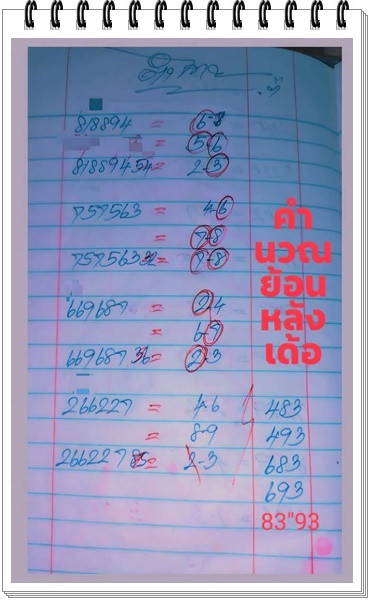 818894 = 6-8
= 5-6
81889454= 2-3
757563 = 4-6
= 7-8
75756332= 7-8
669687 = 2-4
= 6-9
66968736= 2-3
266227 = 4-6
= 8-9
26622785= 2-3
483
493
683
693
83"93
คำ
นวณ
ย้อน
หลัง
เด้อ